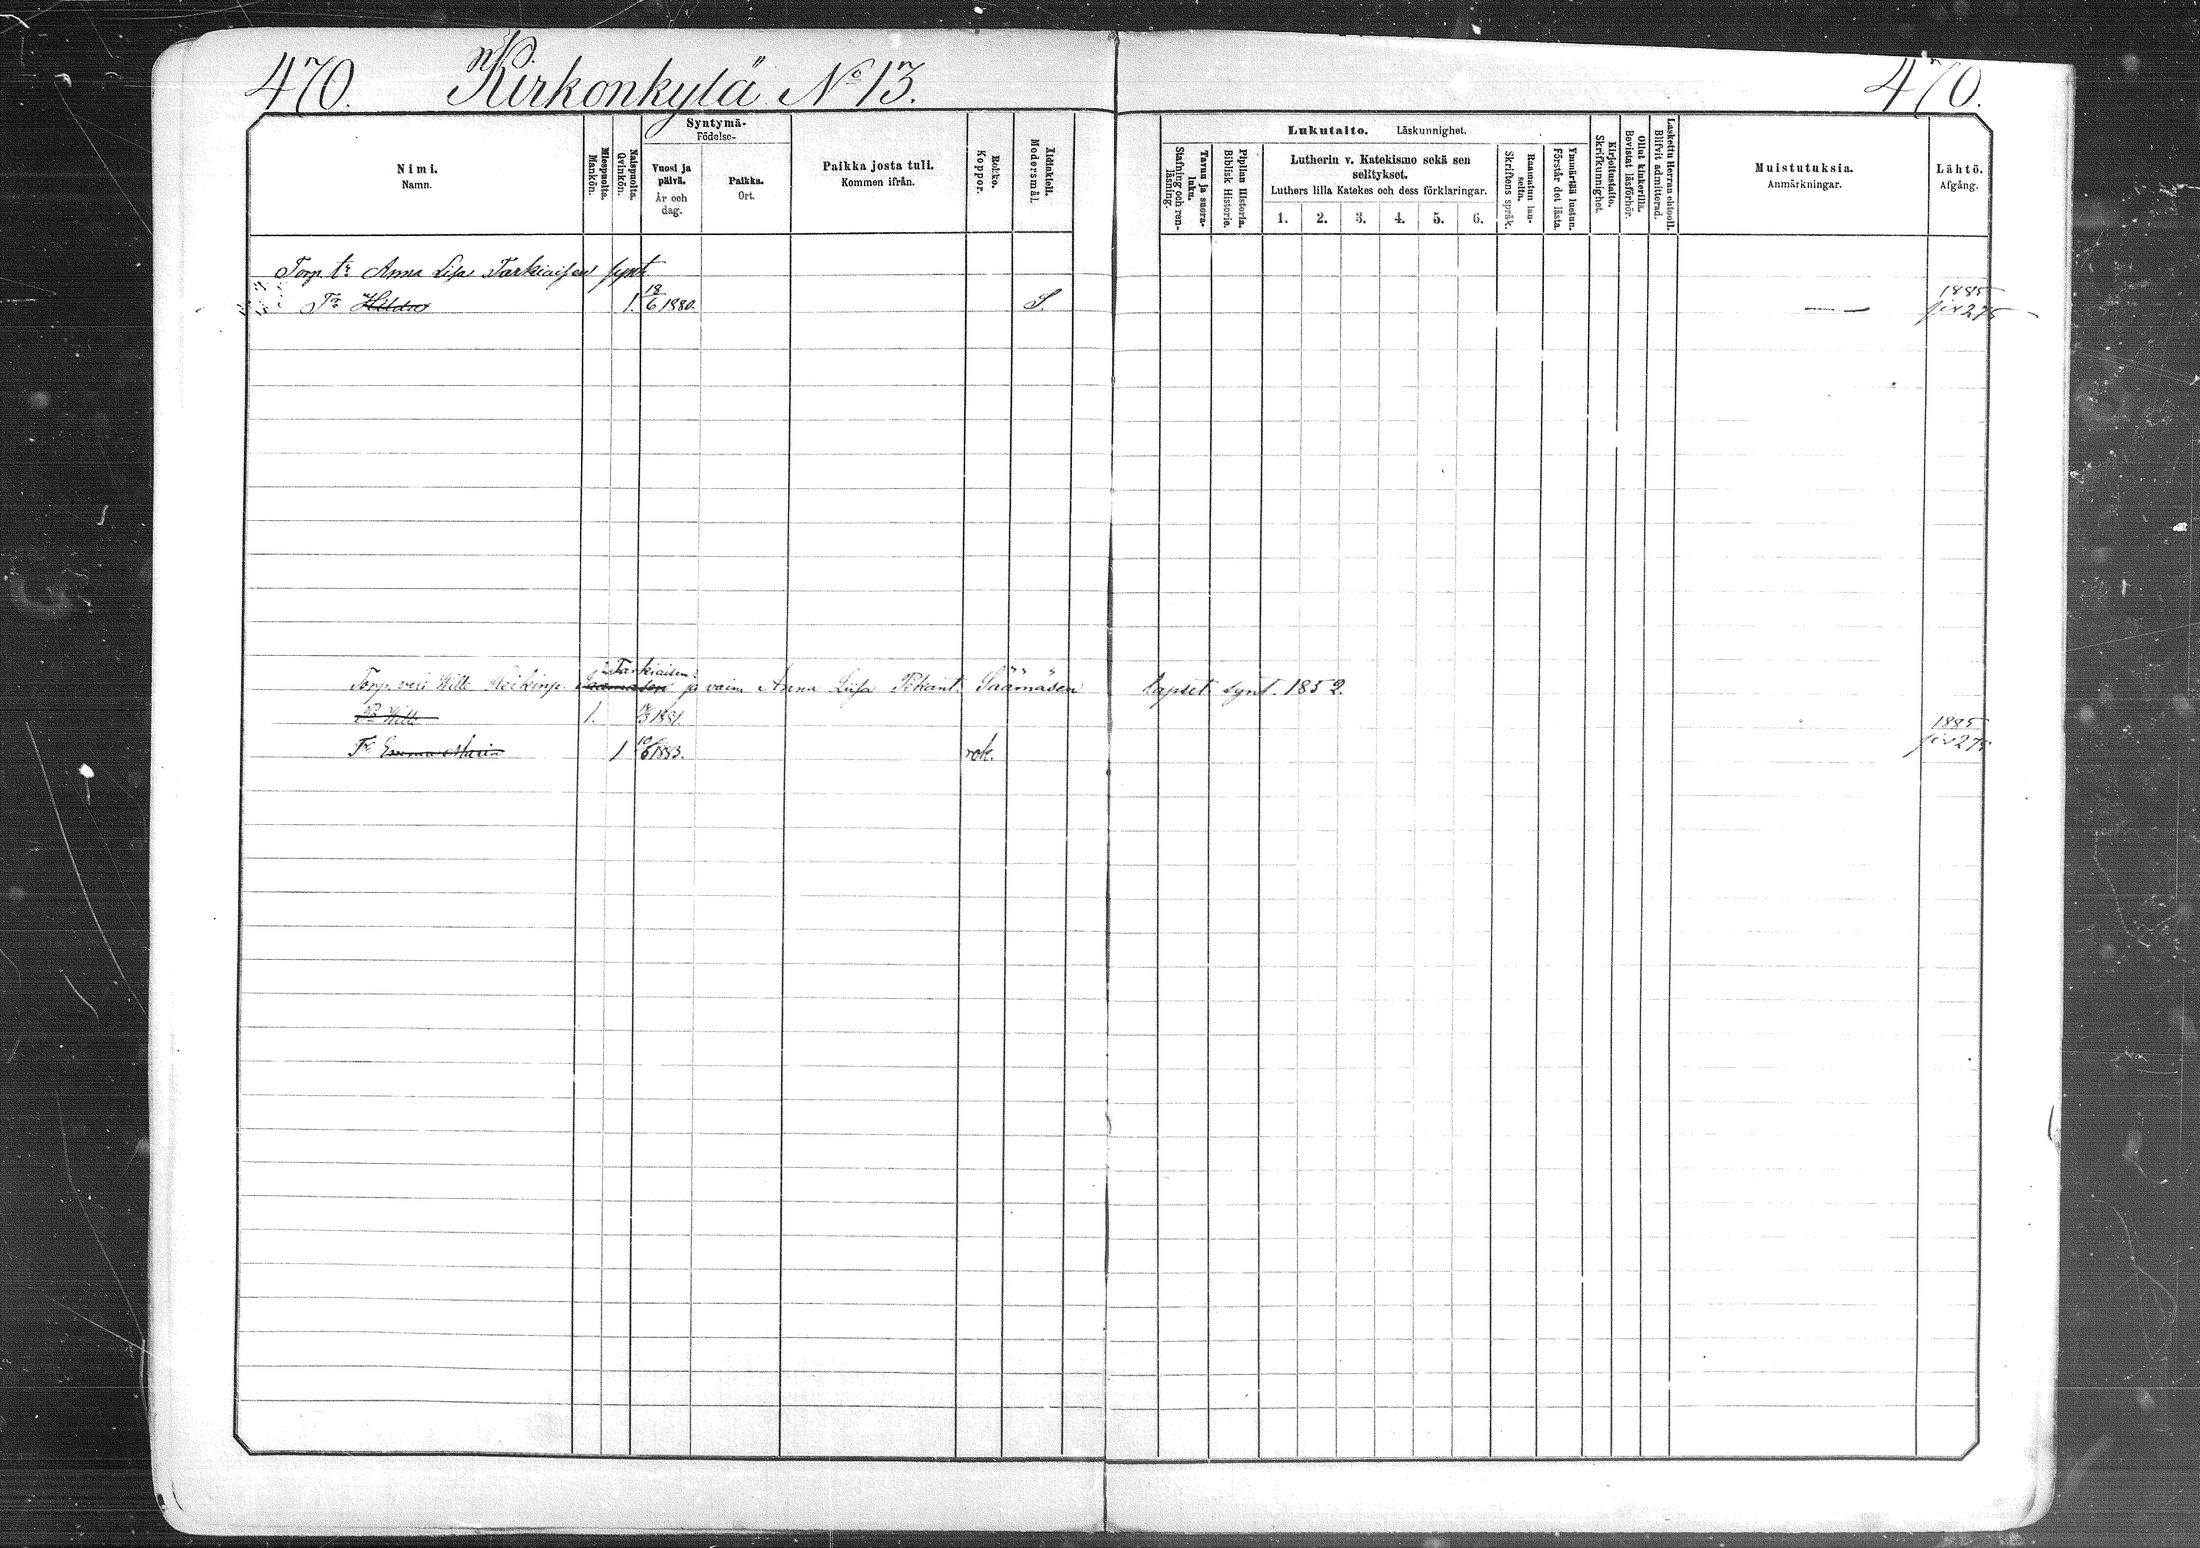 470. Kirkonkylä No 13. 470.
Syntymä-
Födelse-
Nimi.
Namn.
Miespuolta.
Mankön.
Naispuolta.
Qvinkön.
Vuosi ja
päivä.
År och
dag.
Paikka.
Ort.
Paikka josta tuli.
Kommen ifrån.
Rokko.
Koppor.
Äidinkieli.
Modersmål.
Lukutaito. Läskunnighet.
Tavuu ja suora-
luku.
Stafning och ren-
läsning.
Piplian Historia.
Biblisk Historie.
Lutherin v. Katekismo sekä sen
selitykset.
Luthers lilla Katekes och dess förklaringar.
1. 2. 3. 4. 5. 6.
Raamatun lau-
seita.
Skriftens språk.
Ymmärtää luetun.
Förstår det lästa.
Kirjoitustaito.
Skrifkunnighet.
Ollut kinkerillä.
Bevistat läsförhör.
Laskettu Herran ehtooll.
Blifvit admitterad.
Muistutuksia.
Anmärkningar.
Lähtö.
Afgång.
Torp. tr Anna Lisa Tarkiaisen
Tr Hilda 1. 18/6 1880. S. — — 1885 siv 275
Tarkiaisen
Torp. veli Wille Heikinp. Saamasen ja vaim. Anna Liisa Pekant. Säämäsen lapset synt. 1852.
Wille 1. 1881. 1885
Tr Emma Maria 1 10/6 1883. rok. siv 275